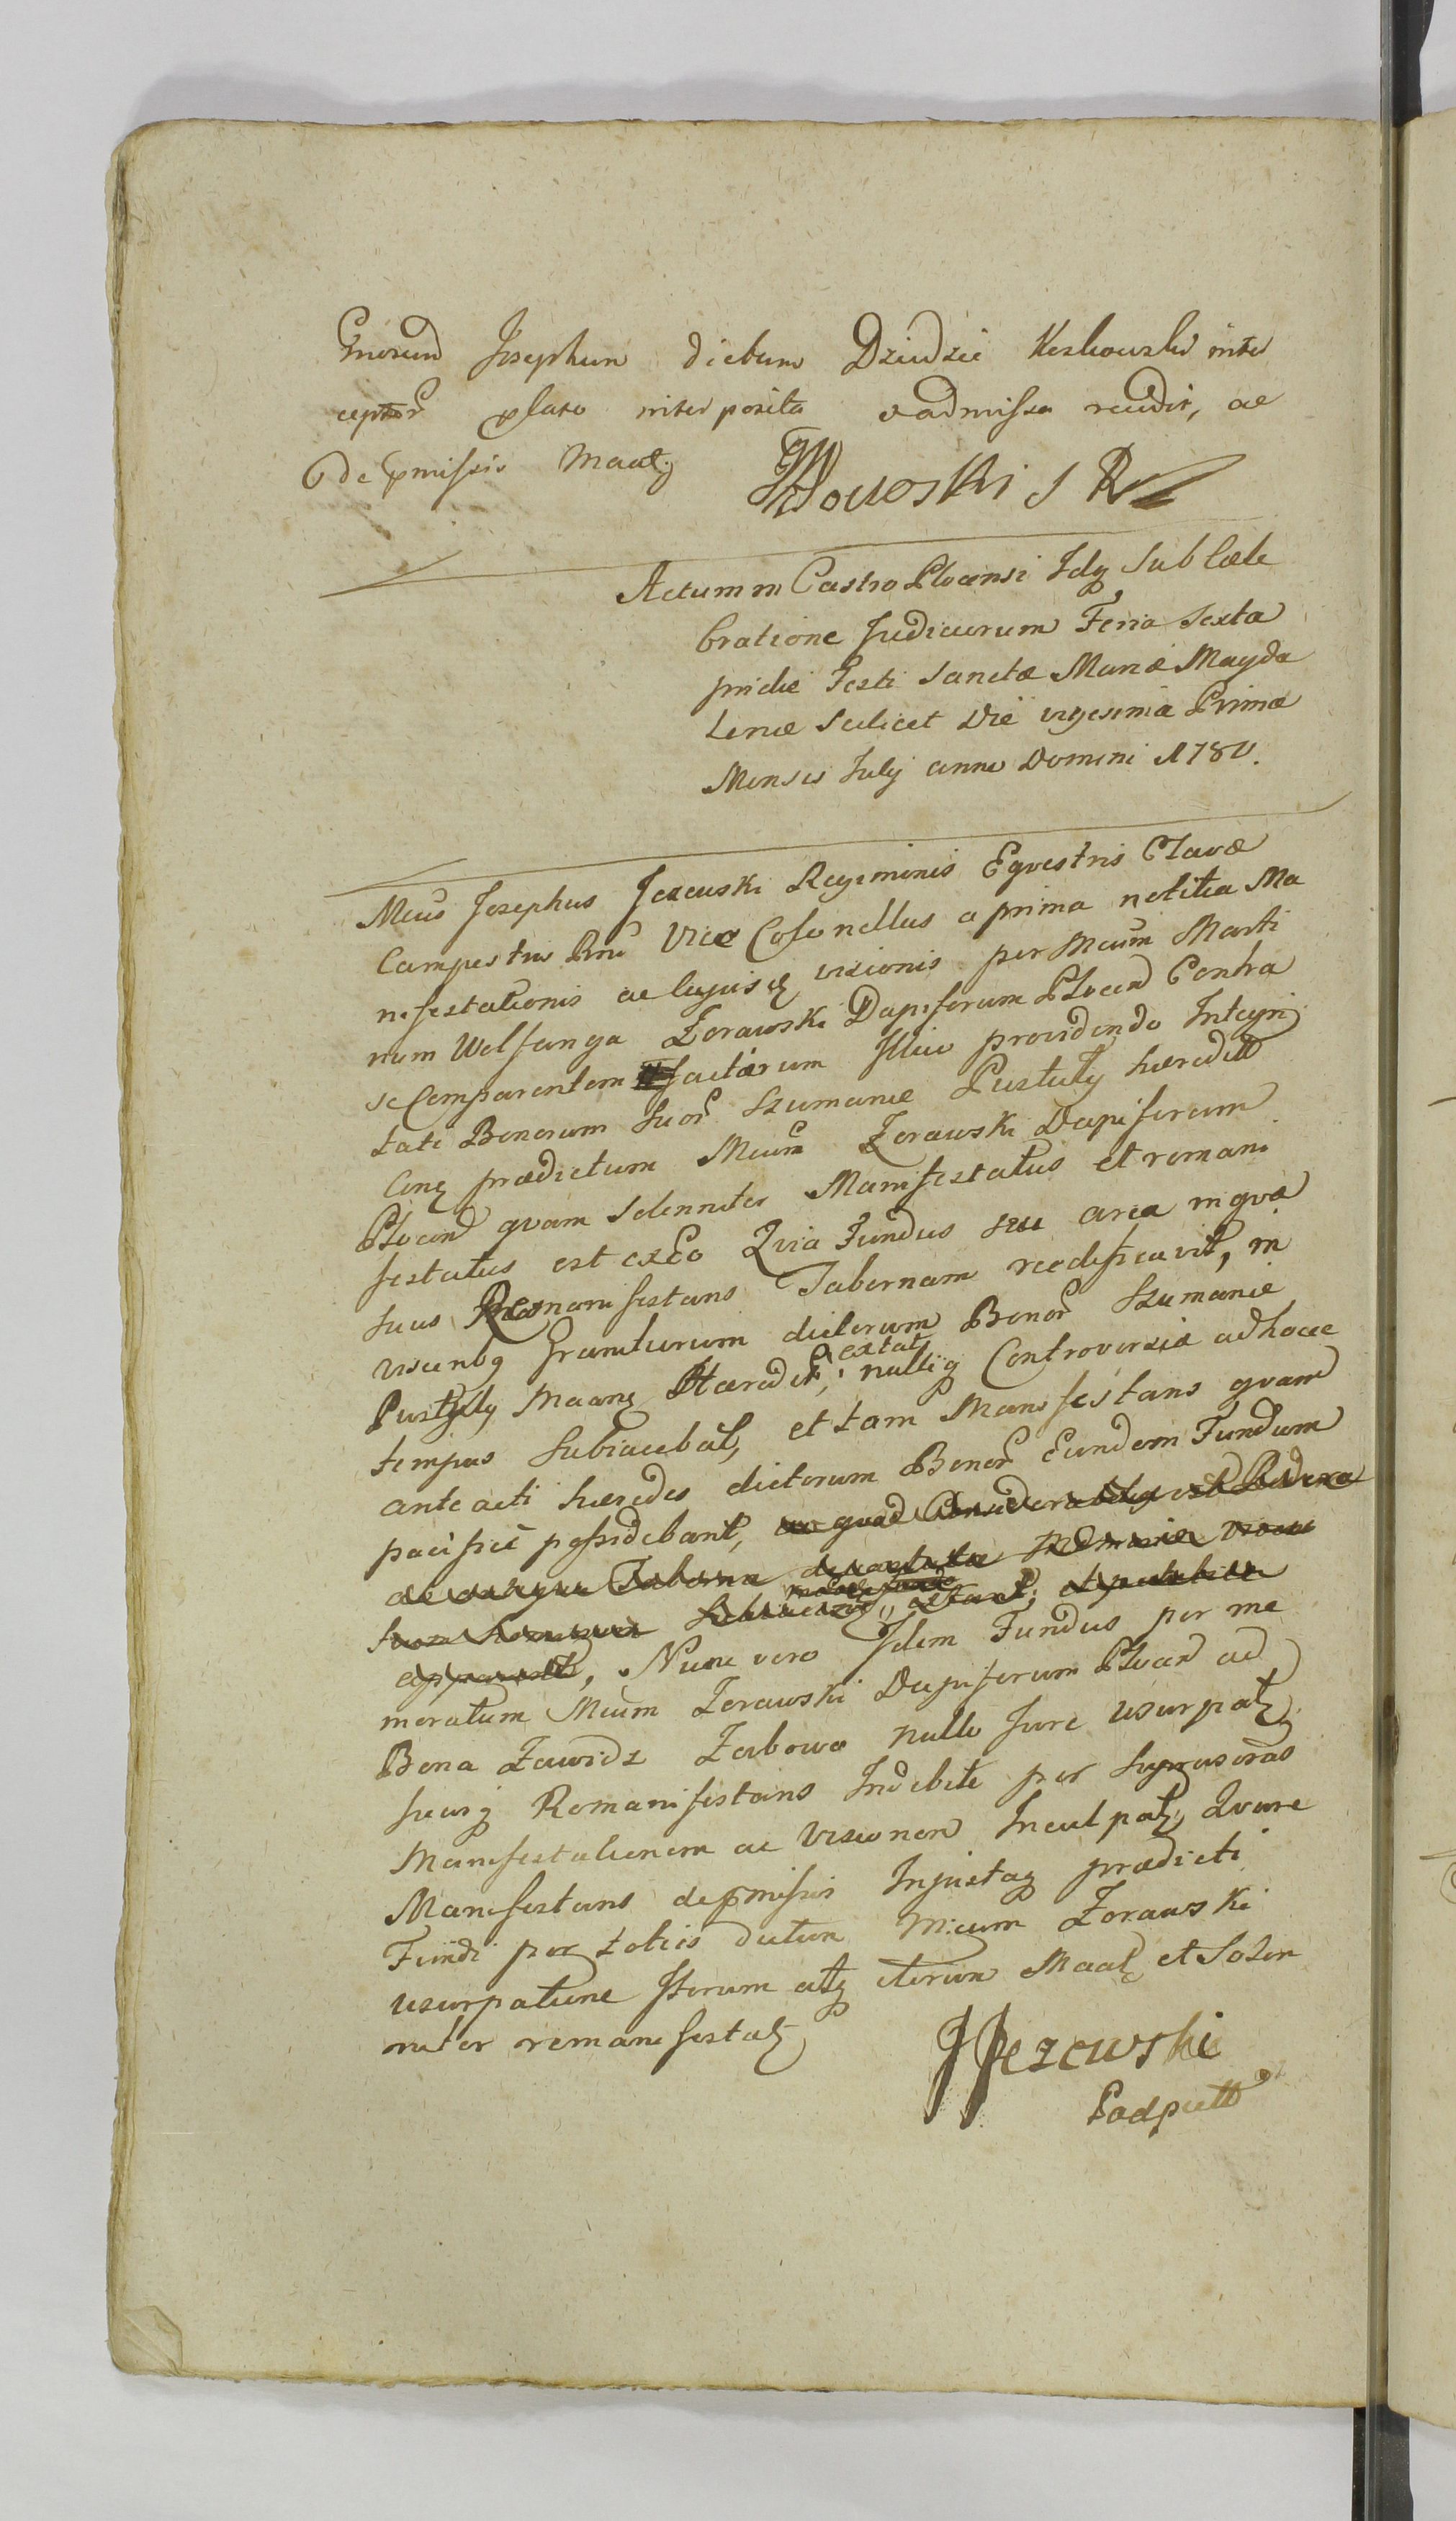 Gnosum Josephum dictum Dziudzie Koskowski inter
ceptor plato interposita vadmissa reddit, ac
de pmissis Maatq
Actum in Castro Plocensi Idq Sub Cele
bratione Judiciorum Feria Sexta
pridie Festi Sanctæ Mariæ Magda
lenæ Scilicet Die vigesima Prima
Mensis July anno Domini 1780.
Mcus Josephus Jezewski Regiminis Eqvestris Clavæ
Campestris Rni Vice Colonellus a prima notitia Ma
nifestationis ac lejusq visionis per Mcum Marti
num Wolfanga Zorawski Dapiferum Plocen Contra
se Comparentem factarum Illico providendo Integri
tati Bonorum Suor Szumanie Pustuły hæredit
Conq prædictum Mcum Zorawski Dapiferum
Plocen qvam Solenniter Manifestatus et remani
festatus est exEo Qvia Fundus seu area in qva
suus Remanifestans Tabernam reedificavit, in
visceribq Granitierum dictorum Bonor Szumanie
Pustuły Maanq Hæredit, extat; nulliq Controversiæ adhocce
tempus Subiacebat, et tam Manifestans qvam
ante acti hæredes dictorum Bonor Eundem Fundum
pacifice possidebant,
Nunc vero Idem Fundus per me
moratum Mcum Zorawski Dapiferum Plocen ad
Bona Zawidz Zabowo nullo Jure usurpatq
suusq Remanifestans Indebite per Suprascras
Manifestationem ac Visionem Inculpatq, Qvare
Manifestans de pmissis Injustaq prædicti
Fundi per toties dictum Mcum Zorawski
usurpatione Iterum atq iterum Maatq et Solen
niter remanifestatq
JJezewski
Podpułk